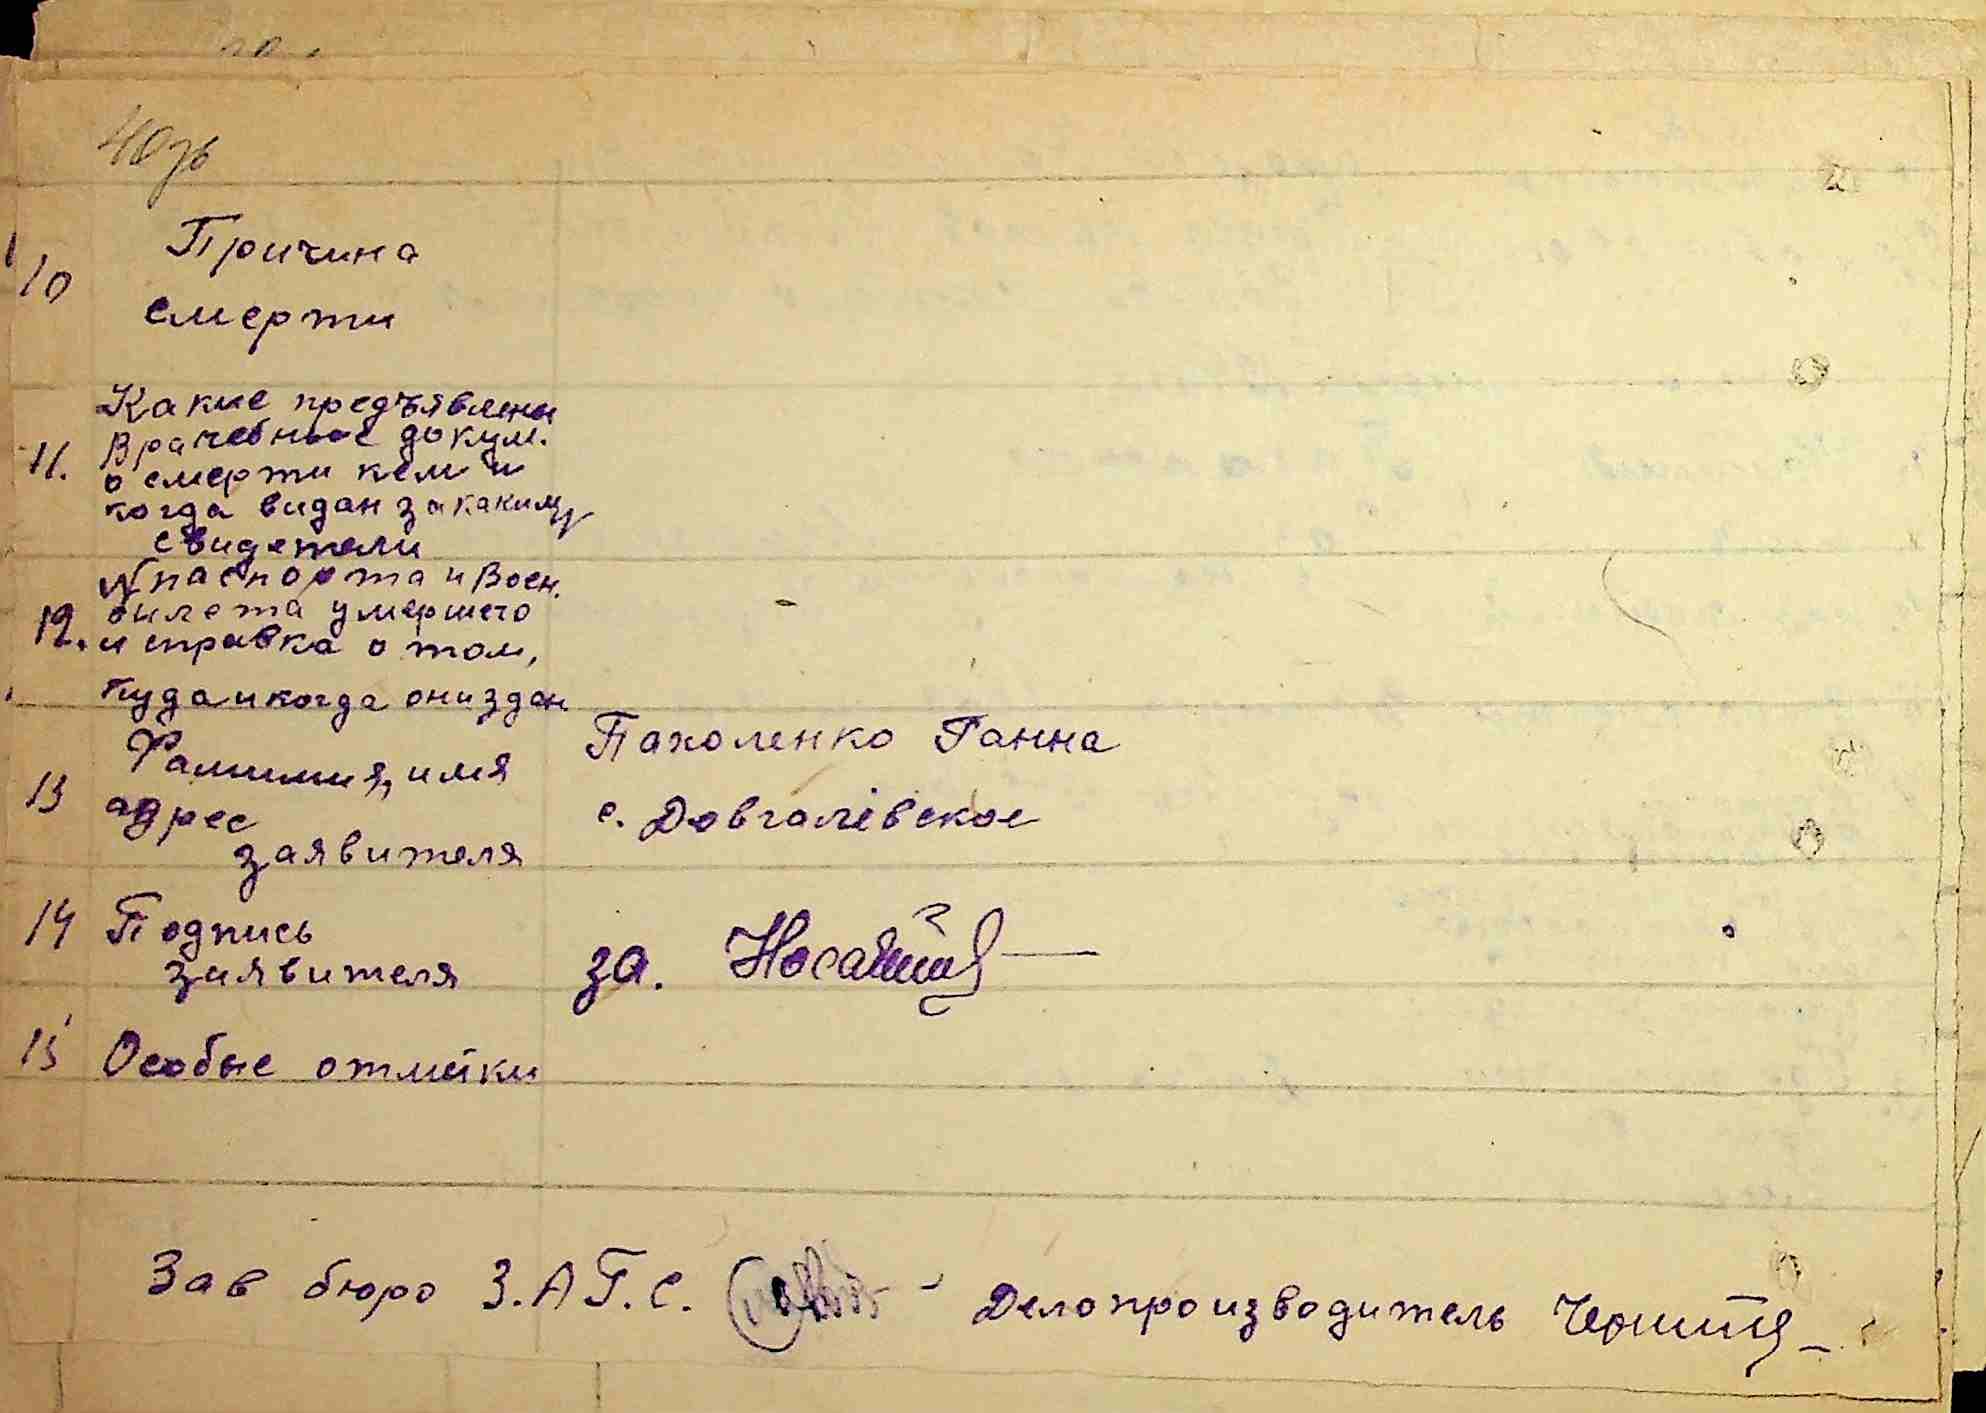 40зв
10 Причина
смерти
11. Какие предъявлены
врачебные докум.
о смерти кем и
когда видан за каким
свидетели
12. № паспорта и воен.
билета умершего
и справка о том,
куда и когда они здан
13 Фамилия, имя
адрес
заявителя
Пахоленко Ганна
с. Довгалівское
14 Подпись
заявителя
за.
15 Особые отметки
Зав бюро З.А.Г.С. Делопроизводитель